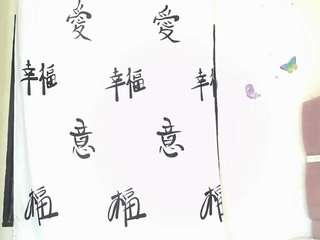 愛 愛
幸福 幸福 幸
意 意
福 福 福